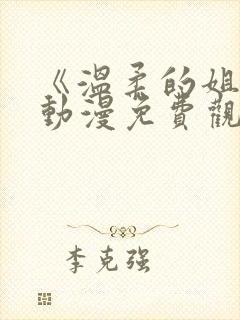 《溫柔的姐
動漫免費觀
李克強